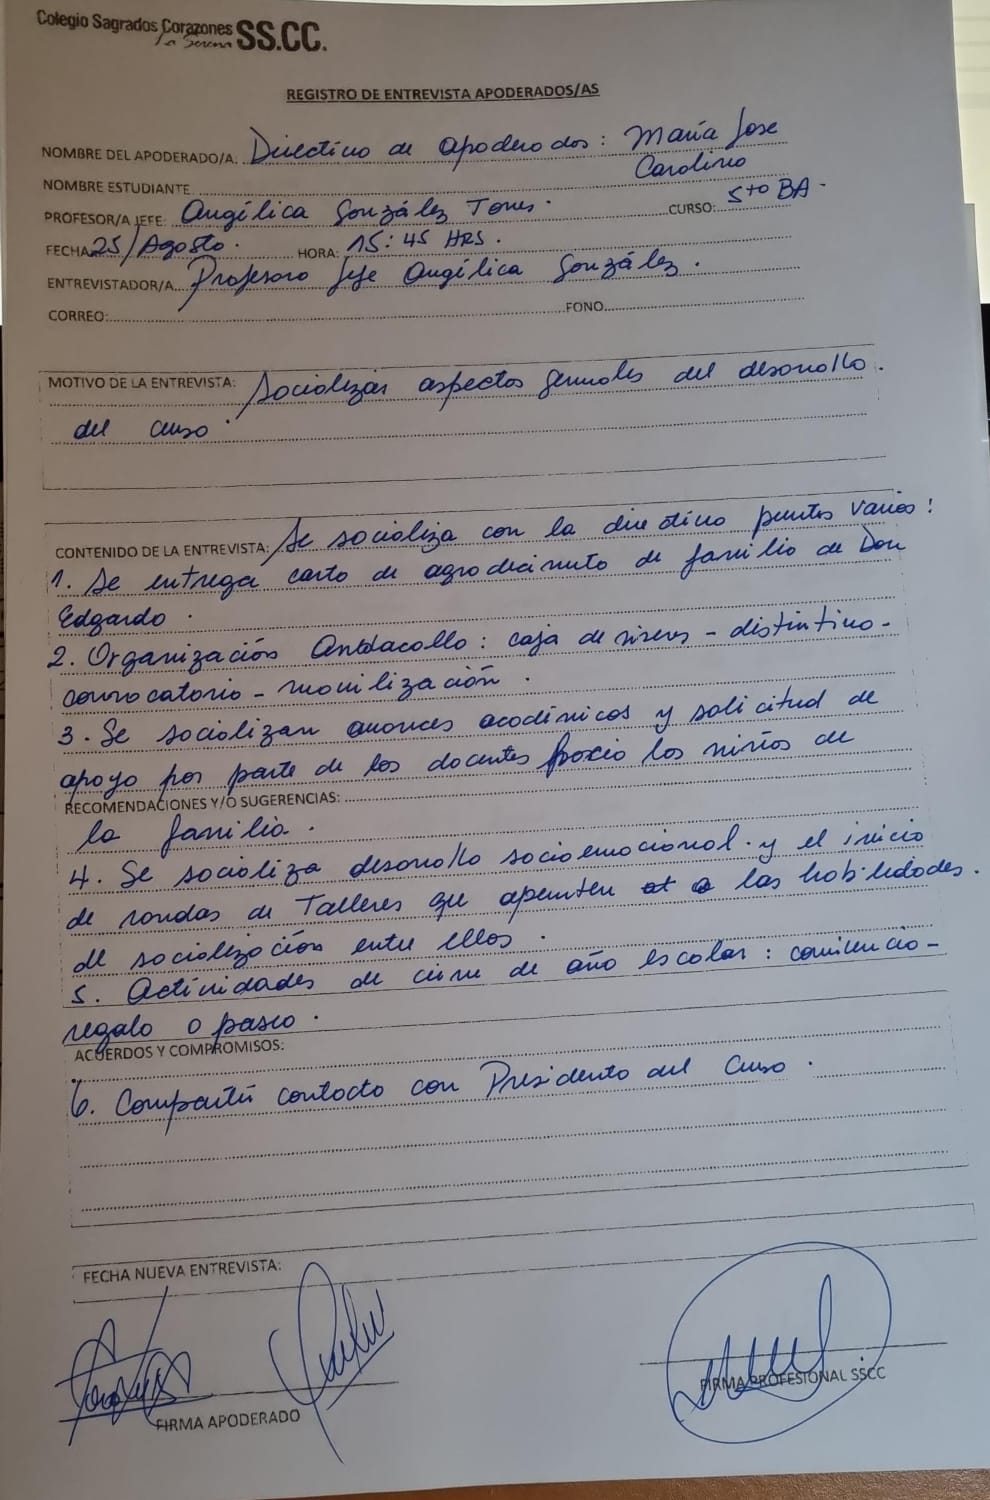 Colegio Sagrados Corazones SS.CC.
La Serena
REGISTRO DE ENTREVISTA APODERADOS/AS
NOMBRE DEL APODERADO/A: Directiva de apoderados: María Jose
Carolina
NOMBRE ESTUDIANTE
PROFESOR/A JEFE: Angélica González Torres. CURSO: 5to BA.
FECHA 25/Agosto. HORA: 15:45 HRS.
ENTREVISTADOR/A Profesora Jefe Angélica González.
CORREO: FONO
MOTIVO DE LA ENTREVISTA: Socializar aspectos generales del desarrollo
del curso.
CONTENIDO DE LA ENTREVISTA: Se socializa con la directiva puntos varios:
1. Se entrega carta de agradecimiento de familia de Don
Edgardo.
2. Organización Andacollo: caja de víveres - distintivo -
convocatoria - movilización.
3. Se socializan avances académicos y solicitud de
apoyo por parte de los docentes hacia los niños de
RECOMENDACIONES Y/O SUGERENCIAS:
la familia.
4. Se socializa desarrollo socioemocional. y el inicio
de rondas de Talleres que apunten a las habilidades.
de socialización entre ellos.
5. Actividades de cierre de año escolar: convivencia -
regalo o paseo.
ACUERDOS Y COMPROMISOS:
6. Compartir contacto con Presidenta del Curso.
FECHA NUEVA ENTREVISTA:
FIRMA APODERADO
FIRMA PROFESIONAL SSCC